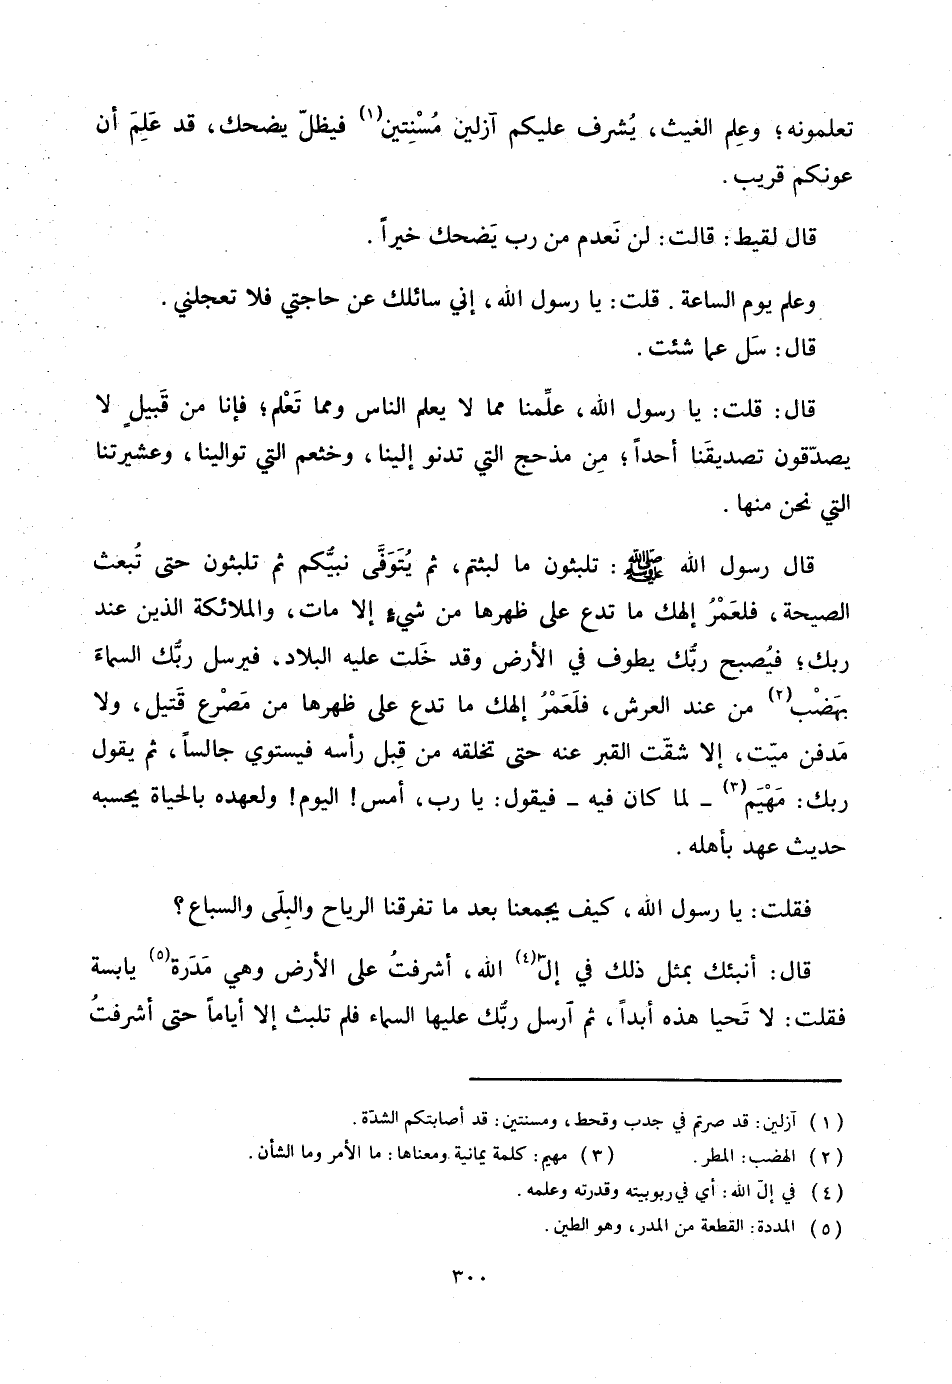 تعلمونه؛ وعِلم الغيث، يُشرف عليكم آزلين مُسْنِتين(١) فيظلّ يضحك، قد عَلِمَ أن
عونكم قريب.
قال لقيط: قالت: لن نَعدم من رب يَضحك خيراً.
وعلم يوم الساعة. قلت: يا رسول الله، إني سائلك عن حاجتي فلا تعجلني.
قال: سَل عما شئت.
قال: قلت: يا رسول الله، علِّمنا مما لا يعلم الناس ومما تَعْلم؛ فإنا من قَبيلٍ لا
يصدّقون تصديقَنا أحداً؛ مِن مذحج التي تدنو إلينا، وخثعم التي توالينا، وعشيرتنا
التي نحن منها.
قال رسول الله ﷺ: تلبثون ما لبثتم، ثم يُتَوَفَّى نبيُّكم ثم تلبثون حتى تُبعث
الصيحة، فلعَمْرُ إلهك ما تدع على ظهرها من شيءٍ إلا مات، والملائكة الذين عند
ربك؛ فيُصبح ربُّك يطوف في الأرض وقد خَلت عليه البلاد، فيرسل ربُّك السماءَ
بهَضْب(٢) من عند العرش، فلَعَمْرُ إلهك ما تدع على ظهرها من مَصْرع قَتيل، ولا
مَدفن ميّت، إلا شقّت القبر عنه حتى تخلقه من قِبل رأسه فيستوي جالساً، ثم يقول
ربك: مَهْيَم(٣) ـ لما كان فيه ـ فيقول: يا رب، أمس! اليوم! ولعهده بالحياة يحسبه
حديث عهد بأهله.
فقلت: يا رسول الله، كيف يجمعنا بعد ما تفرقنا الرياح والبِلَى والسباع؟
قال: أنبئك بمثل ذلك في إلّ(٤) الله، أشرفتُ على الأرض وهي مَدَرة(٥) يابسة
فقلت: لا تَحيا هذه أبداً، ثم أرسل ربُّك عليها السماء فلم تلبث إلا أياماً حتى أشرفتُ
(١) آزلين: قد صرتم في جدب وقحط، ومسنتين: قد أصابتكم الشدّة.
(٢) الهضب: المطر. (٣) مهيم: كلمة يمانية ومعناها: ما الأمر وما الشأن.
(٤) في إلّ الله: أي في ربوبيته وقدرته وعلمه.
(٥) المددة: القطعة من المدر، وهو الطين.
٣٠٠